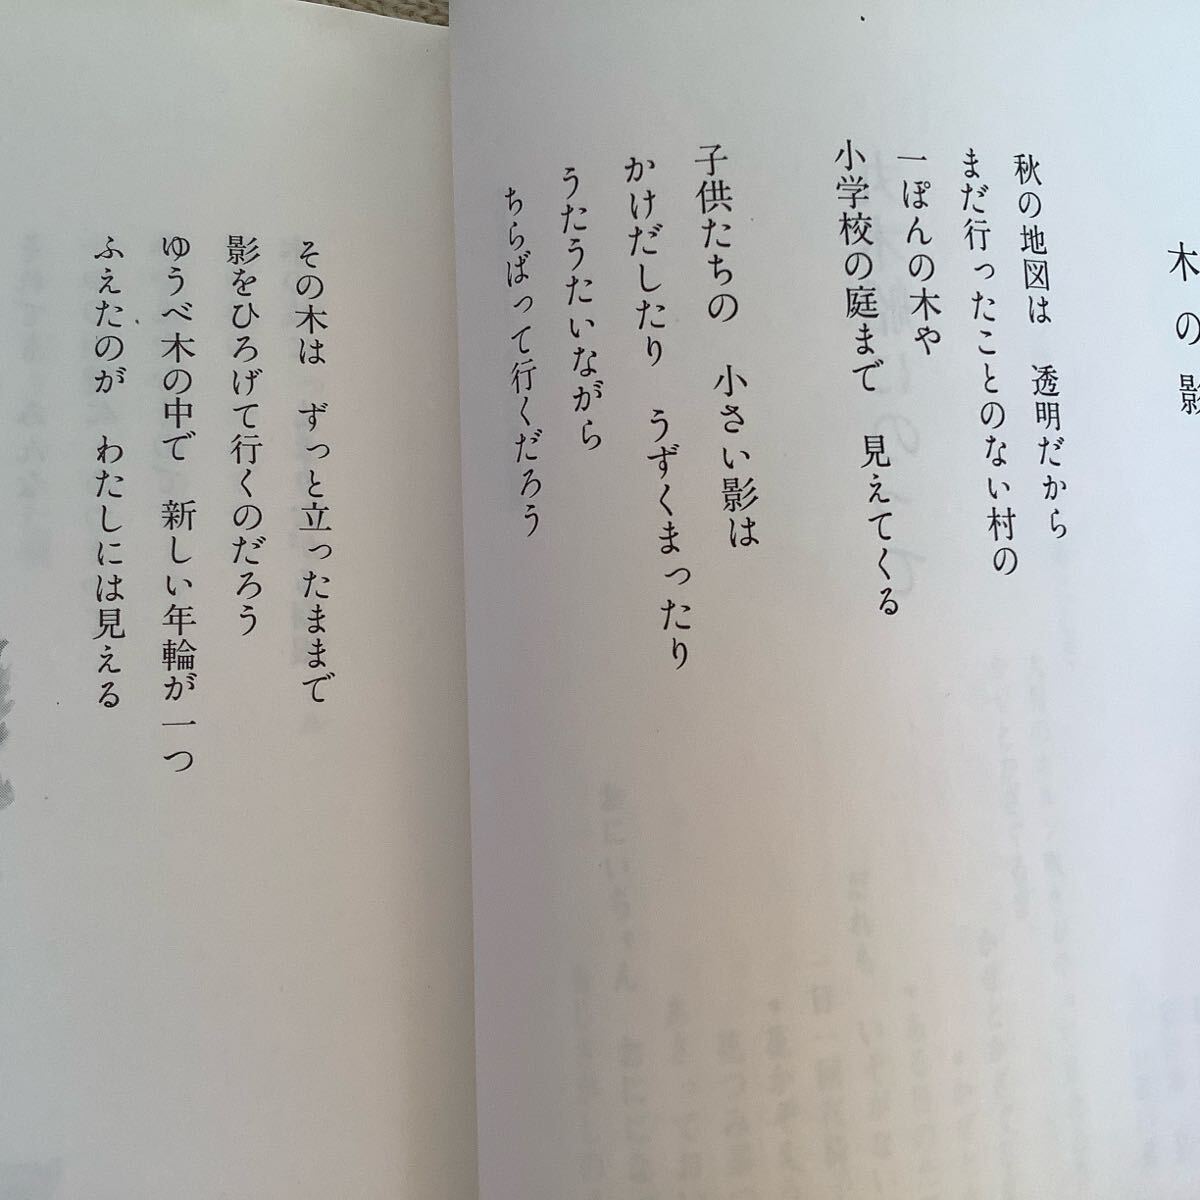 木の影
秋の地図は　透明だから
まだ行ったことのない村の
一ぽんの木や
小学校の庭まで　見えてくる
子供たちの　小さい影は
かけだしたり　うずくまったり
うたうたいながら
ちらばって行くだろう
その木は　ずっと立ったままで
影をひろげて行くのだろう
ゆうべ木の中で　新しい年輪が一つ
ふえたのが　わたしには見える